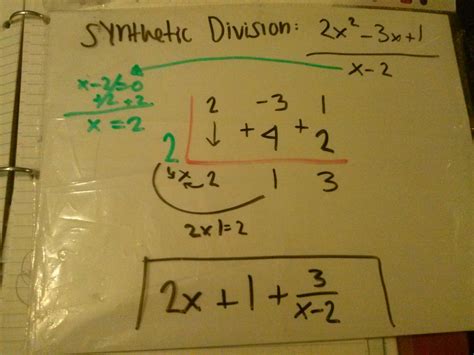 Synthetic Division: 2x² - 3x + 1
x - 2
x - 2 = 0
+2 +2
x = 2
2 -3 1
2 ↓ + 4 + 2
2 1 3
2x1=2
2x + 1 + 3/(x-2)